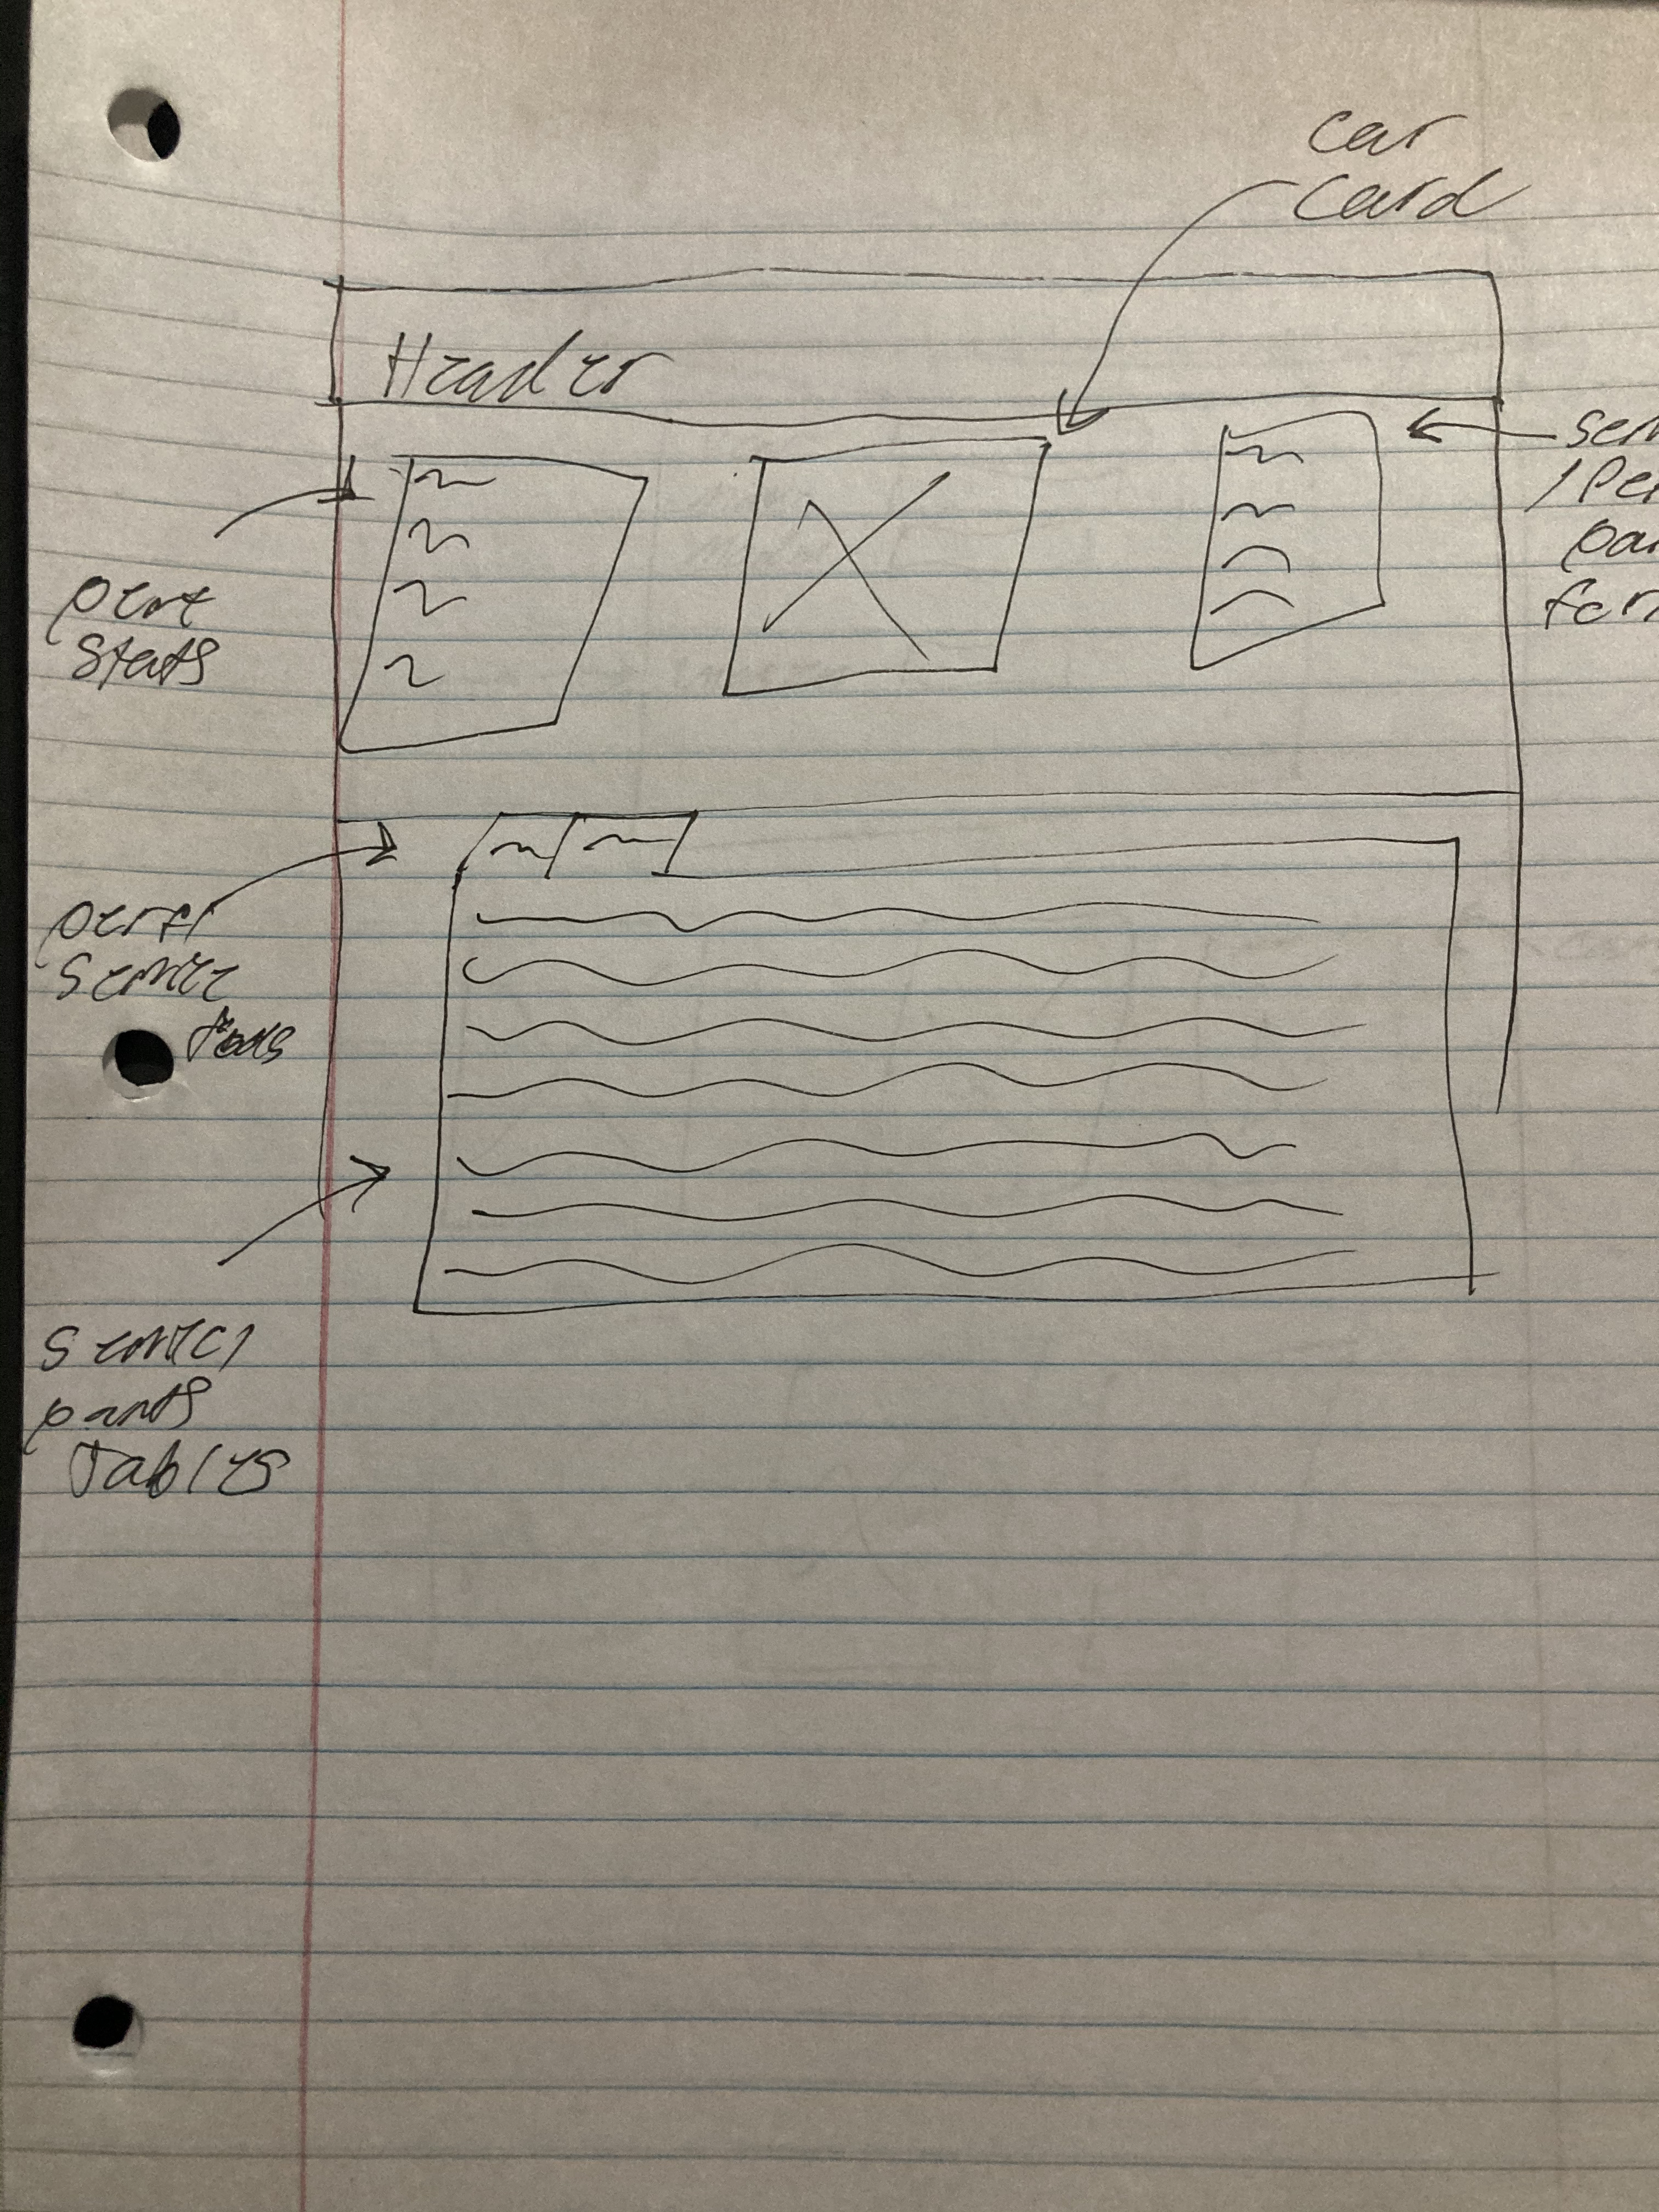 car
card
Header
ser
/Per
par
for
perf
stats
perf/
service
tabs
service/
parts
Tables